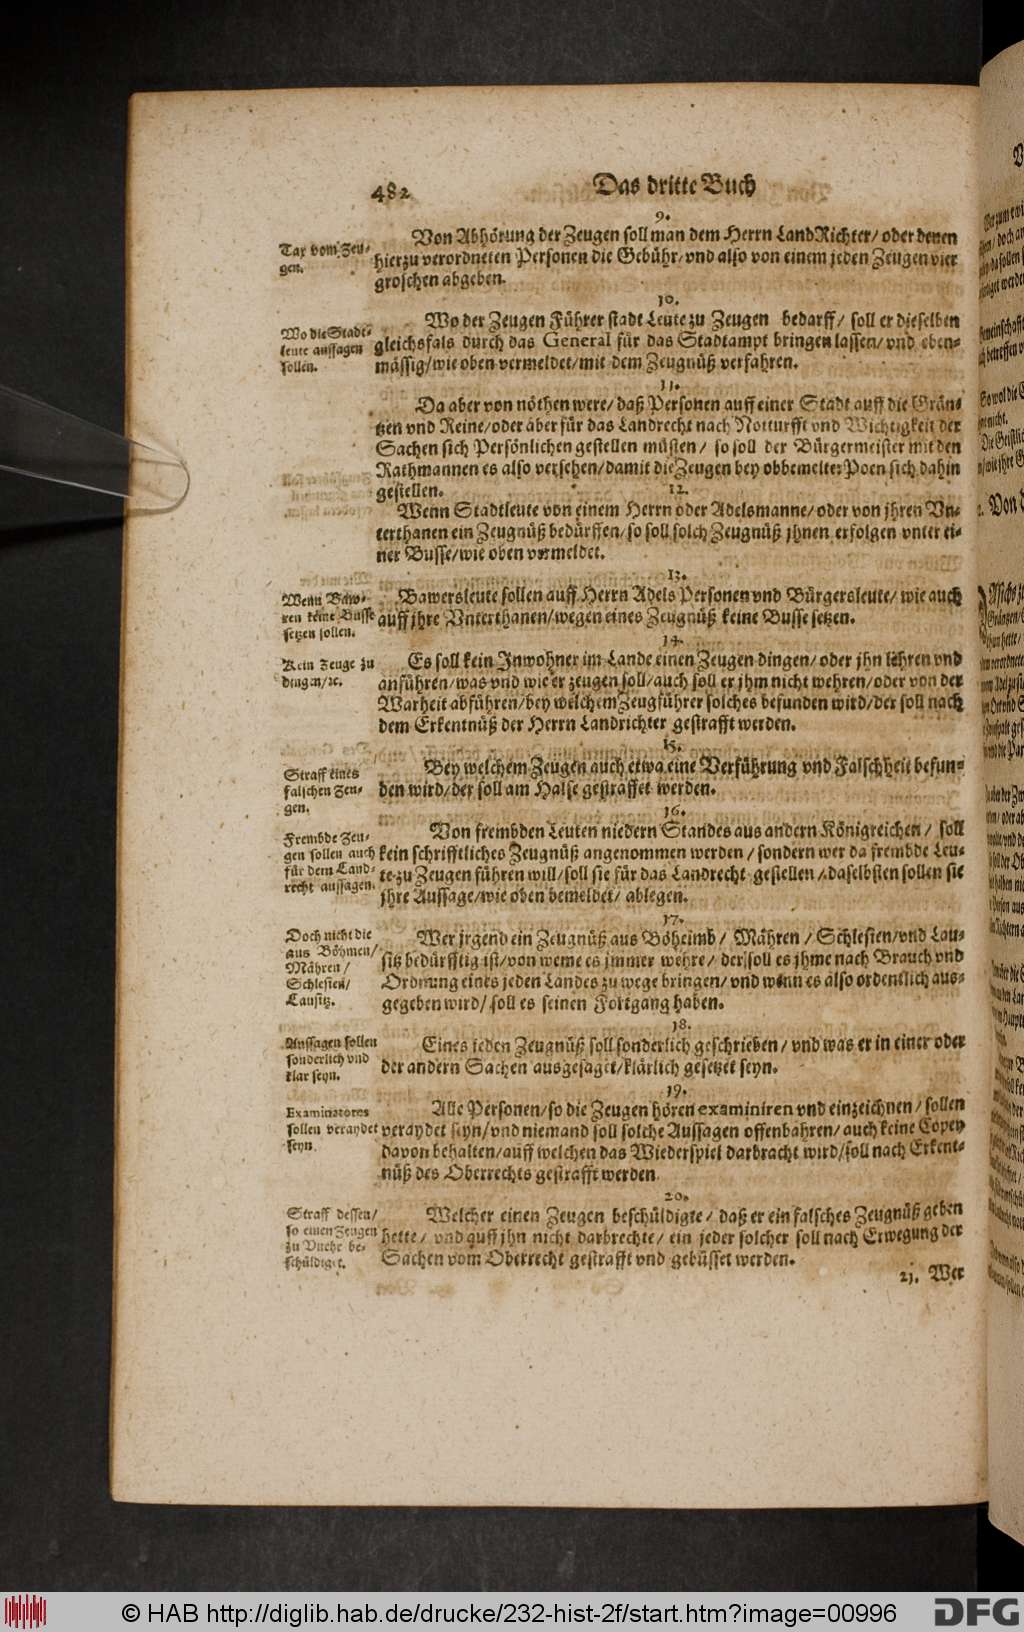 482
Das dritte Buch
9.
Tax vom Zeu-
gen.
Von Abhörung der Zeugen soll man dem Herrn LandRichter/ oder denen
hierzu verordneten Personen die Gebühr/ vnd also von einem jeden Zeugen vier
groschen abgeben.
10.
Wo die Stadt-
leute aussagen
sollen.
Wo der Zeugen Führer stadt Leute zu Zeugen bedarff/ soll er dieselben
gleichsfals durch das General für das Stadtampt bringen lassen/ vnd eben-
mässig/ wie oben vermeldet/ mit dem Zeugnüß verfahren.
11.
Da aber von nöthen were/ daß Personen auff einer Stadt auff die Grän-
tzen vnd Reine/ oder aber für das Landrecht nach Notturfft vnd Wichtigkeit der
Sachen sich Persönlichen gestellen müsten/ so soll der Bürgermeister mit den
Rathmannen es also versehen/ damit die Zeugen bey obbemelter Poen sich dahin
gestellen.
12.
Wenn Stadtleute von einem Herrn oder Adelsmanne/ oder von jhren Vn-
terthanen ein Zeugnüß bedürffen/ so soll solch Zeugnüß jhnen erfolgen vnter ei-
ner Busse/ wie oben vermeldet.
13.
Wenn Baw-
ren keine Busse
setzen sollen.
Bawersleute sollen auff Herrn Adels Personen vnd Bürgersleute/ wie auch
auff jhre Vnterthanen/ wegen eines Zeugnüß keine Busse setzen.
14.
Kein Zeuge zu
dingen/ ꝛc.
Es soll kein Inwohner im Lande einen Zeugen dingen/ oder jhn lehren vnd
anführen/ was vnd wie er zeugen soll/ auch soll er jhm nicht wehren/ oder von der
Warheit abführen/ bey welchem Zeugführer solches befunden wird/ der soll nach
dem Erkentnüß der Herrn Landrichter gestrafft werden.
15.
Straff eines
falschen Zeu-
gen.
Bey welchem Zeugen auch etwa eine Verführung vnd Falschheit befun-
den wird/ der soll am Halse gestraffet werden.
16.
Frembde Zeu-
gen sollen auch
für dem Land-
recht aussagen.
Von frembden Leuten niedern Standes aus andern Königreichen/ soll
kein schrifftliches Zeugnüß angenommen werden/ sondern wer da frembde Leu-
te zu Zeugen führen will/ soll sie für das Landrecht gestellen/ daselbsten sollen sie
jhre Aussage/ wie oben bemeldet/ ablegen.
17.
Doch nicht die
aus Böhmen/
Mähren/
Schlesien/
Lausitz.
Wer jrgend ein Zeugnüß aus Böheimb/ Mähren/ Schlesien/ vnd Lau-
sitz bedürfftig ist/ von weme es jmmer wehre/ der soll es jhme nach Brauch vnd
Ordnung eines jeden Landes zu wege bringen/ vnd wenn es also ordentlich aus-
gegeben wird/ soll es seinen Fortgang haben.
18.
Aussagen sollen
sonderlich vnd
klar seyn.
Eines jeden Zeugnüß soll sonderlich geschrieben/ vnd was er in einer oder
der andern Sachen ausgesaget/ klärlich gesetzet seyn.
19.
Examinatores
sollen veraydet
seyn.
Alle Personen/ so die Zeugen hören examiniren vnd einzeichnen/ sollen
veraydet seyn/ vnd niemand soll solche Aussagen offenbahren/ auch keine Copey
davon behalten/ auff welchen das Wiederspiel darbracht wird/ soll nach Erkent-
nüß des Oberrechts gestrafft werden.
20.
Straff dessen/
so einen Zeugen
zu Vnehr be-
schüldiget.
Welcher einen Zeugen beschüldigte/ daß er ein falsches Zeugnüß geben
hette/ vnd auff jhn nicht darbrechte/ ein jeder solcher soll nach Erwegung der
Sachen vom Oberrecht gestrafft vnd gebüsset werden.
21. Wer
© HAB http://diglib.hab.de/drucke/232-hist-2f/start.htm?image=00996
DFG